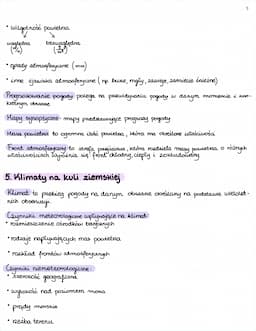 • wilgotność powietrza
względna bezwzględna
• opady atmosferyczne (mm)
• inne zjawiska atmosferyczne (np. burze, mgły, zawieje, zamiecie śnieżne)
Prognozowanie pogody polega na przewidywaniu pogody w danym momencie i kon-
kretnym obszarze
Mapy synoptyczne - mapy przedstawiające prognozy pogody
Masa powietrza to ogromna ilość powietrza, która ma określone właściwości
Front atmosferyczny to strefa przejściowa, która rozdziela masy powietrza, o różnych
właściwościach. Wyróżnia się front chłodny, ciepły i zokludowany
5. Klimaty na kuli ziemskiej
Klimat to przebieg pogody na danym obszarze określany na podstawie wielolet-
nich obserwacji.
Czynniki meteorologiczne wpływające na klimat:
• rozmieszczenie ośrodków barycznych
• rodzaje napływających mas powietrza
• rozkład frontów atmosferycznych
Czynniki niemeteorologiczne:
• szerokość geograficzna
• wysokość nad poziomem morza
• prądy morskie
• rzeźba terenu